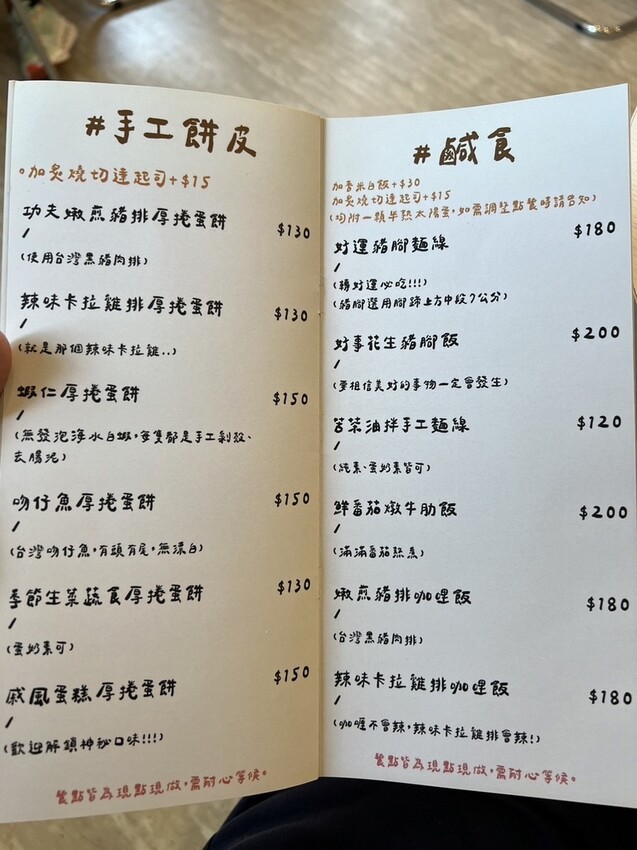 #手工餅皮
。加炙燒切達起司+$15
功夫嫩煎豬排厚捲蛋餅 $130
/
(使用台灣黑豬肉排)
辣味卡拉雞排厚捲蛋餅 $130
/
(就是那個辣味卡拉雞..)
蝦仁厚捲蛋餅 $150
/
(無發泡海水白蝦,每隻都是手工剝殼、
去腸泥)
吻仔魚厚捲蛋餅 $150
/
(台灣吻仔魚,有頭有尾,無漂白)
季節生菜蔬食厚捲蛋餅 $130
/
(蛋奶素可)
戚風蛋糕厚捲蛋餅 $150
/
(歡迎解鎖神秘口味!!!)
餐點皆為現點現做,需耐心等候。
#鹹食
加香米白飯+$30
加炙燒切達起司+$15
(均附一顆半熟太陽蛋,如需調整點餐時請告知)
好運豬腳麵線 $180
/
(轉好運必吃!!!)
(豬腳選用腳蹄上方中段7公分)
好事花生豬腳飯 $200
/
(要相信美好的事物一定會發生)
苦茶油拌手工麵線 $120
/
(純素、蛋奶素皆可)
鮮番茄燉牛肋飯 $200
/
(滿滿番茄熬煮)
嫩煎豬排咖哩飯 $180
/
(台灣黑豬肉排)
辣味卡拉雞排咖哩飯 $180
/
(咖喱不會辣,辣味卡拉雞排會辣!)
餐點皆為現點現做,需耐心等候。